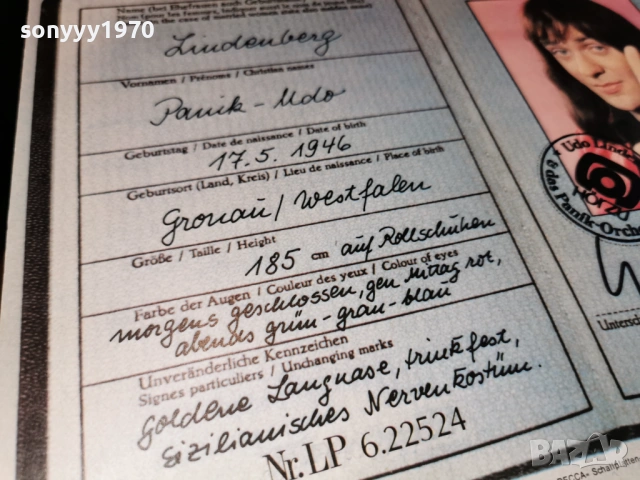 sonyyy1970
Name (bei Ehefrauen, auch Geburtsname)
Lindenberg
Vornamen / Prénoms / Christian names
Panik-Udo
Geburtstag / Date de naissance / Date of birth
17.5. 1946
Geburtsort (Land, Kreis) / Lieu de naissance / Place of birth
Gronau/Westfalen
Größe / Taille / Height
185 cm auf Rollschuhen
Farbe der Augen / Couleur des yeux / Colour of eyes
morgens geschlossen, gen Mittag rot,
abends grün-grau-blau
Unveränderliche Kennzeichen
Signes particuliers / Unchanging marks
goldene Langnase, trinkfest,
sizilianisches Nervenkostüm.
Nr. LP 6.22524
Udo Linde
& das Panik-Orche
Untersch
DECCA Schallplatten
BAZAR